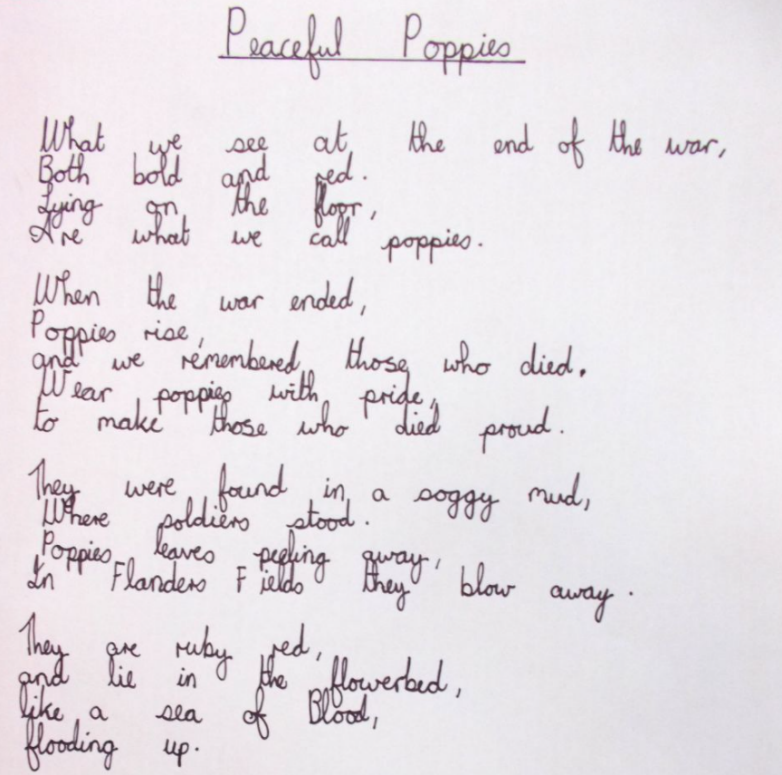 Peaceful Poppies
What we see at the end of the war,
Both bold and red.
Lying on the floor,
Are what we call poppies.
When the war ended,
Poppies rise,
and we remembered those who died.
Wear poppies with pride,
to make those who died proud.
They were found in a soggy mud,
Where soldiers stood.
Poppies leaves peeling away,
In Flanders Fields they blow away.
They are ruby red,
and lie in the flowerbed,
like a sea of Blood,
flooding up.